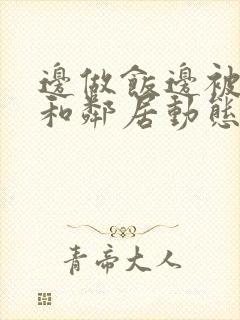 邊做飯邊被
和鄰居動態
青帝大人